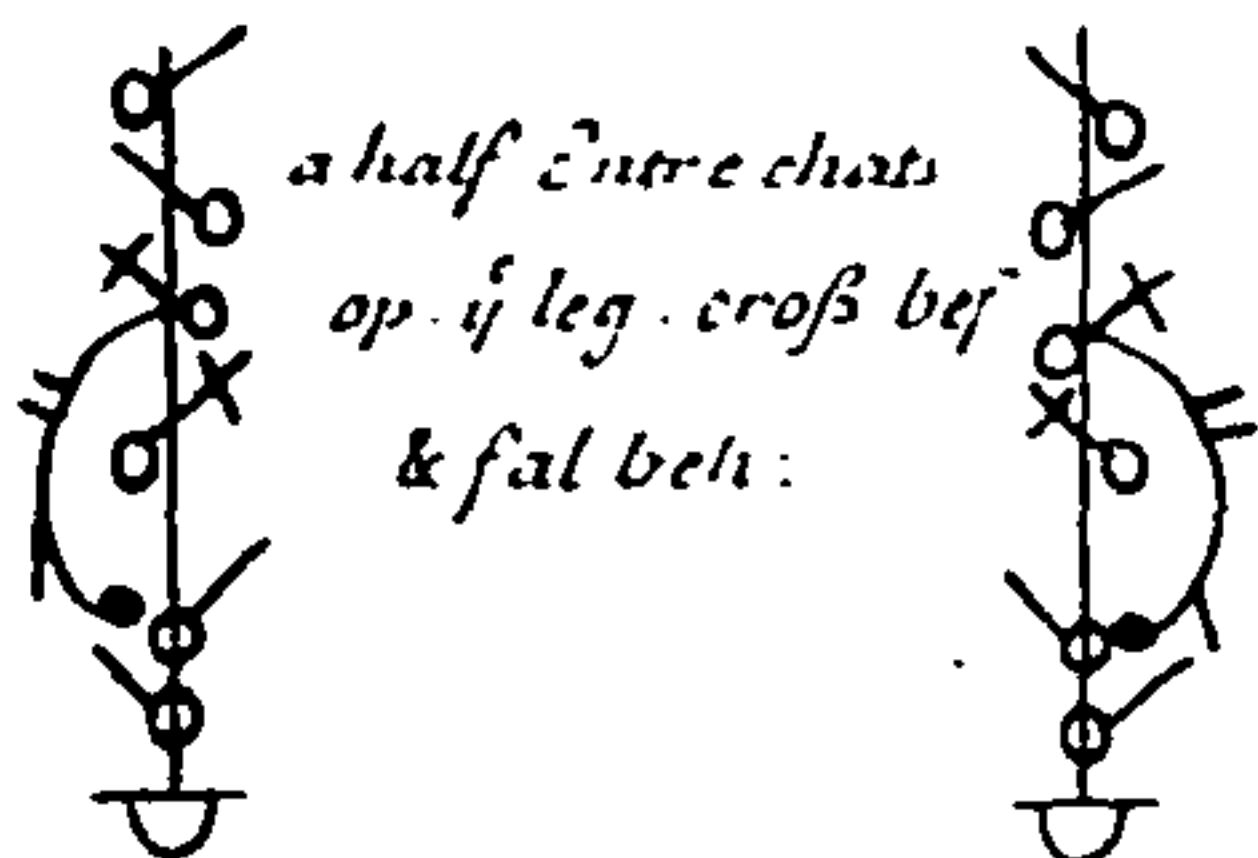 a half Entre chats
op. yͤ leg. croß bef
& fal beh: